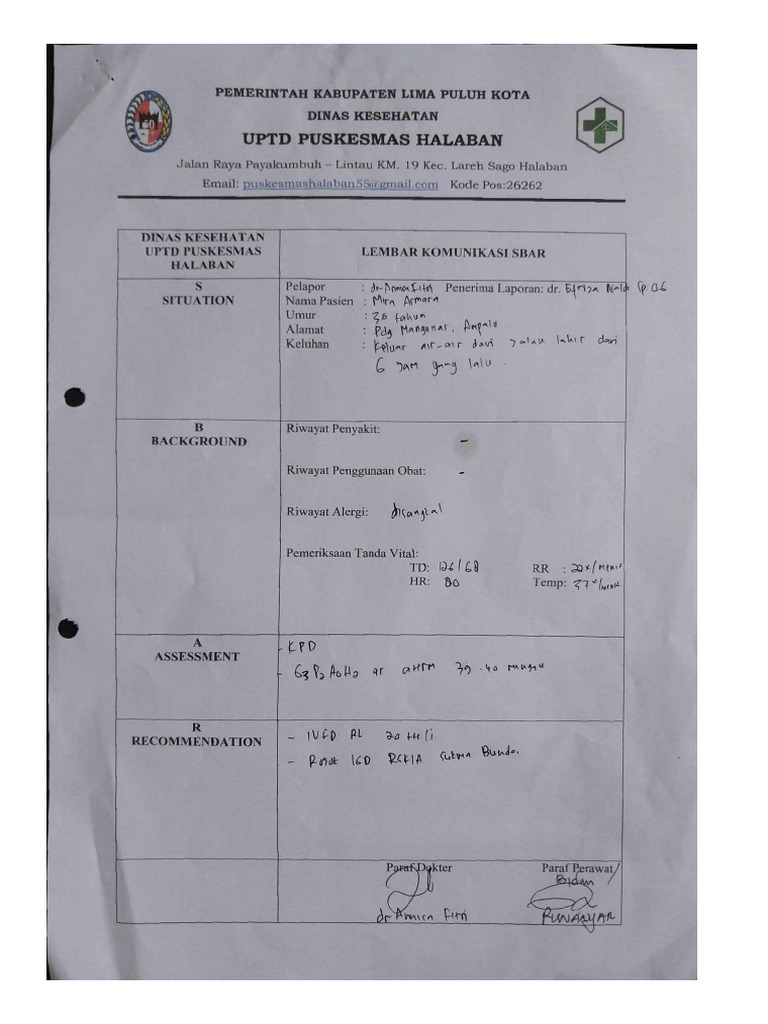 PEMERINTAH KABUPATEN LIMA PULUH KOTA
DINAS KESEHATAN
UPTD PUSKESMAS HALABAN
Jalan Raya Payakumbuh – Lintau KM. 19 Kec. Lareh Sago Halaban
Email: puskesmashalaban55@gmail.com Kode Pos:26262
DINAS KESEHATAN
UPTD PUSKESMAS
HALABAN
LEMBAR KOMUNIKASI SBAR
S
SITUATION
Pelapor : dr Fitri Penerima Laporan: dr. Sp.OG
Nama Pasien : Mira Asmara
Umur : 30 tahun
Alamat : Pdg Ampalu
Keluhan : Keluar air-air dari jalan lahir dari
6 jam yang lalu.
B
BACKGROUND
Riwayat Penyakit: -
Riwayat Penggunaan Obat: -
Riwayat Alergi: disangkal
Pemeriksaan Tanda Vital:
TD: 126/68 RR : 22x/menit
HR: 80 Temp:
A
ASSESSMENT
- KPD
- G3P2A0H2 aterm 39-40 minggu
R
RECOMMENDATION
- IVFD RL 20
- Rujuk IGD Bunda.
Paraf Dokter Paraf Perawat/
Bidan
dr Annisa Fitri